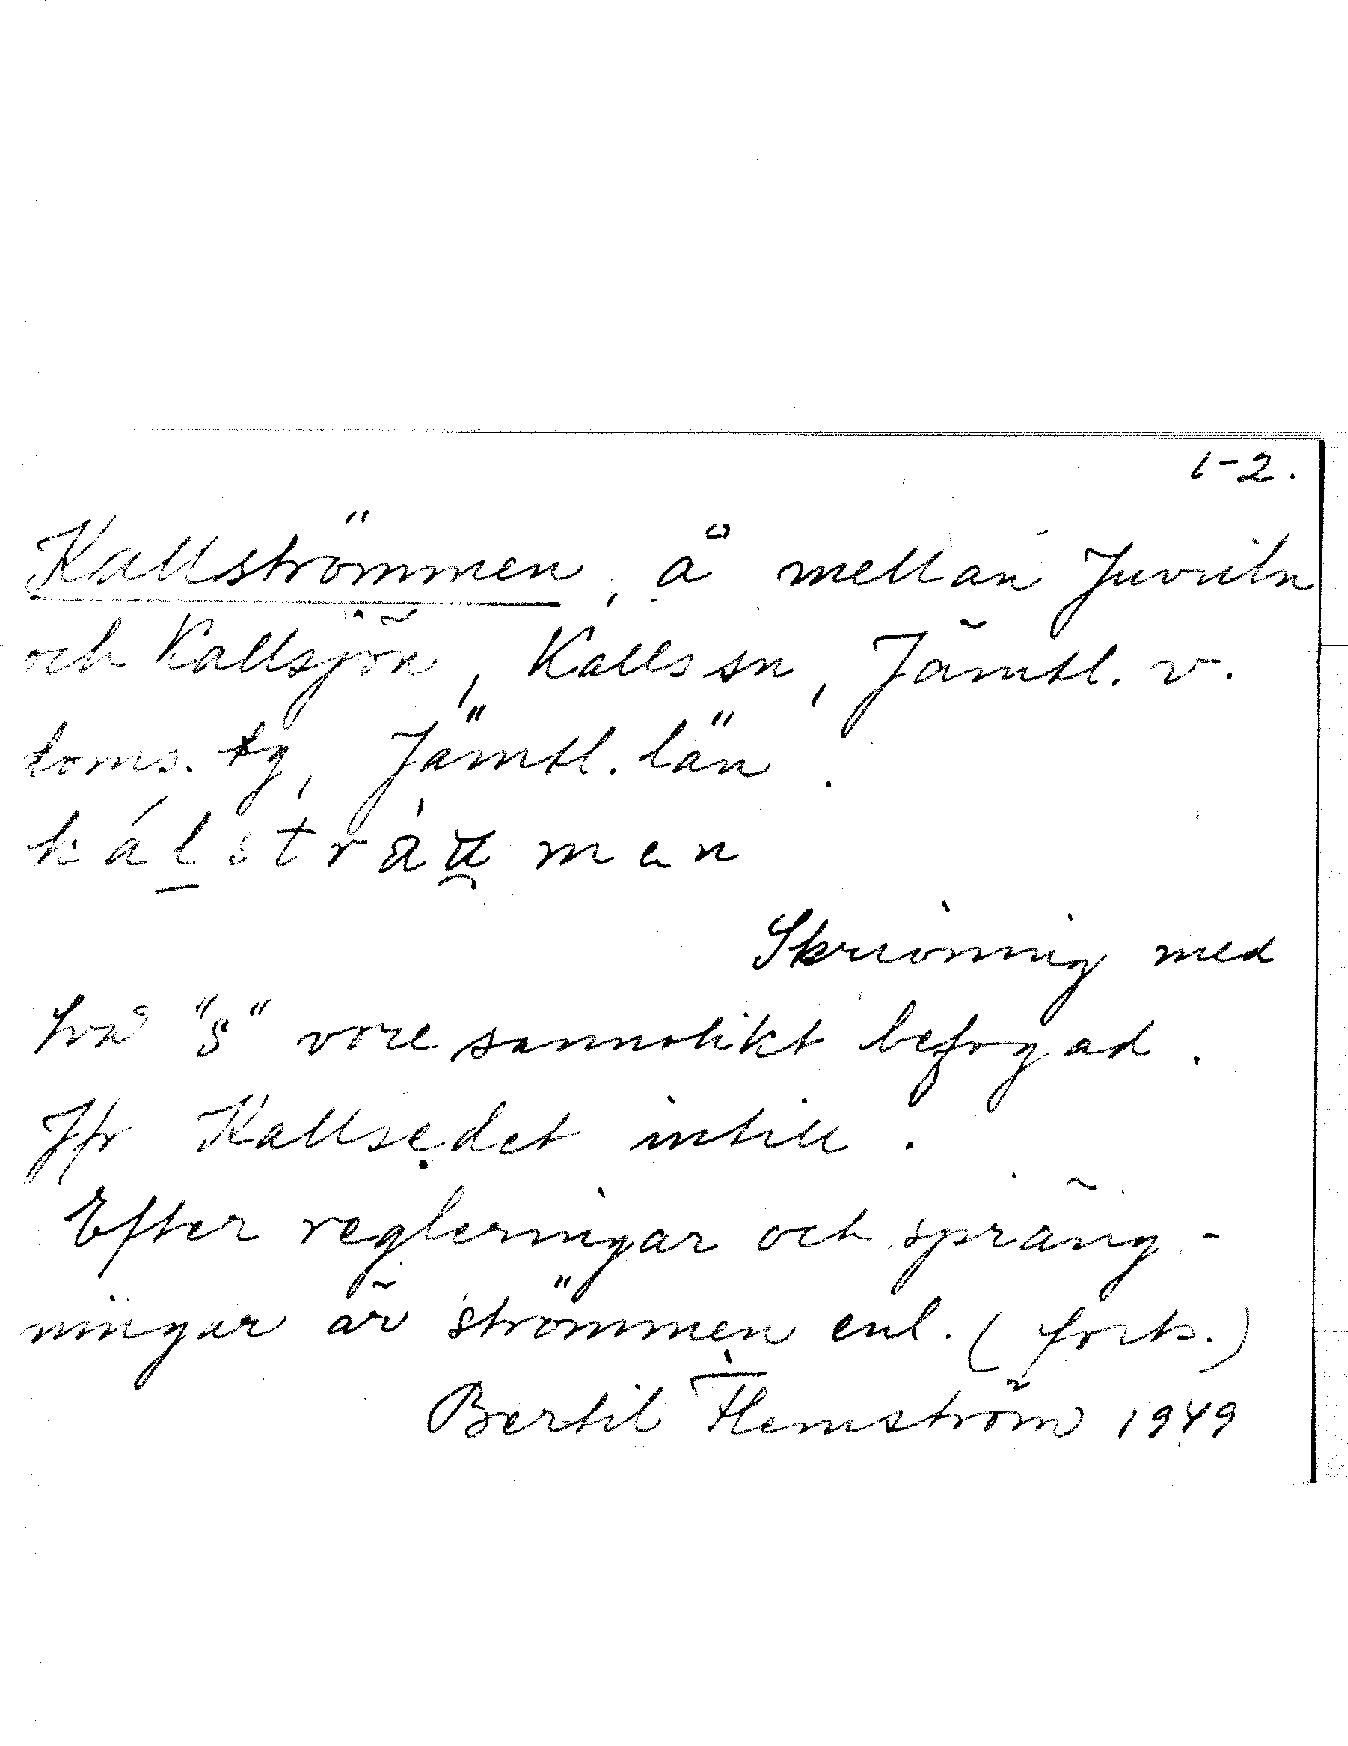 1-2.
Kallströmmen, å mellan Juveln
och Kallsjön, Kalls sn, Jämtl. v.
doms. tg, Jämtl. län.
Skrivning med
två "s" vore sannolikt befogad.
Jfr Kallsedet intill.
Efter regleringar och spräng-
ningar är strömmen enl. (forts.)
Bertil Flemström 1949